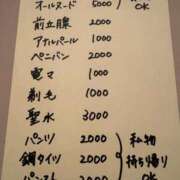 オールヌード 5000 OK
前立腺 2000
アナルパール 1000
ペニバン 2000
電マ 1000
剃毛 1000
聖水 3000
パンツ 2000 私物
網タイツ 2000 持ち帰り
パンスト 2000 OK